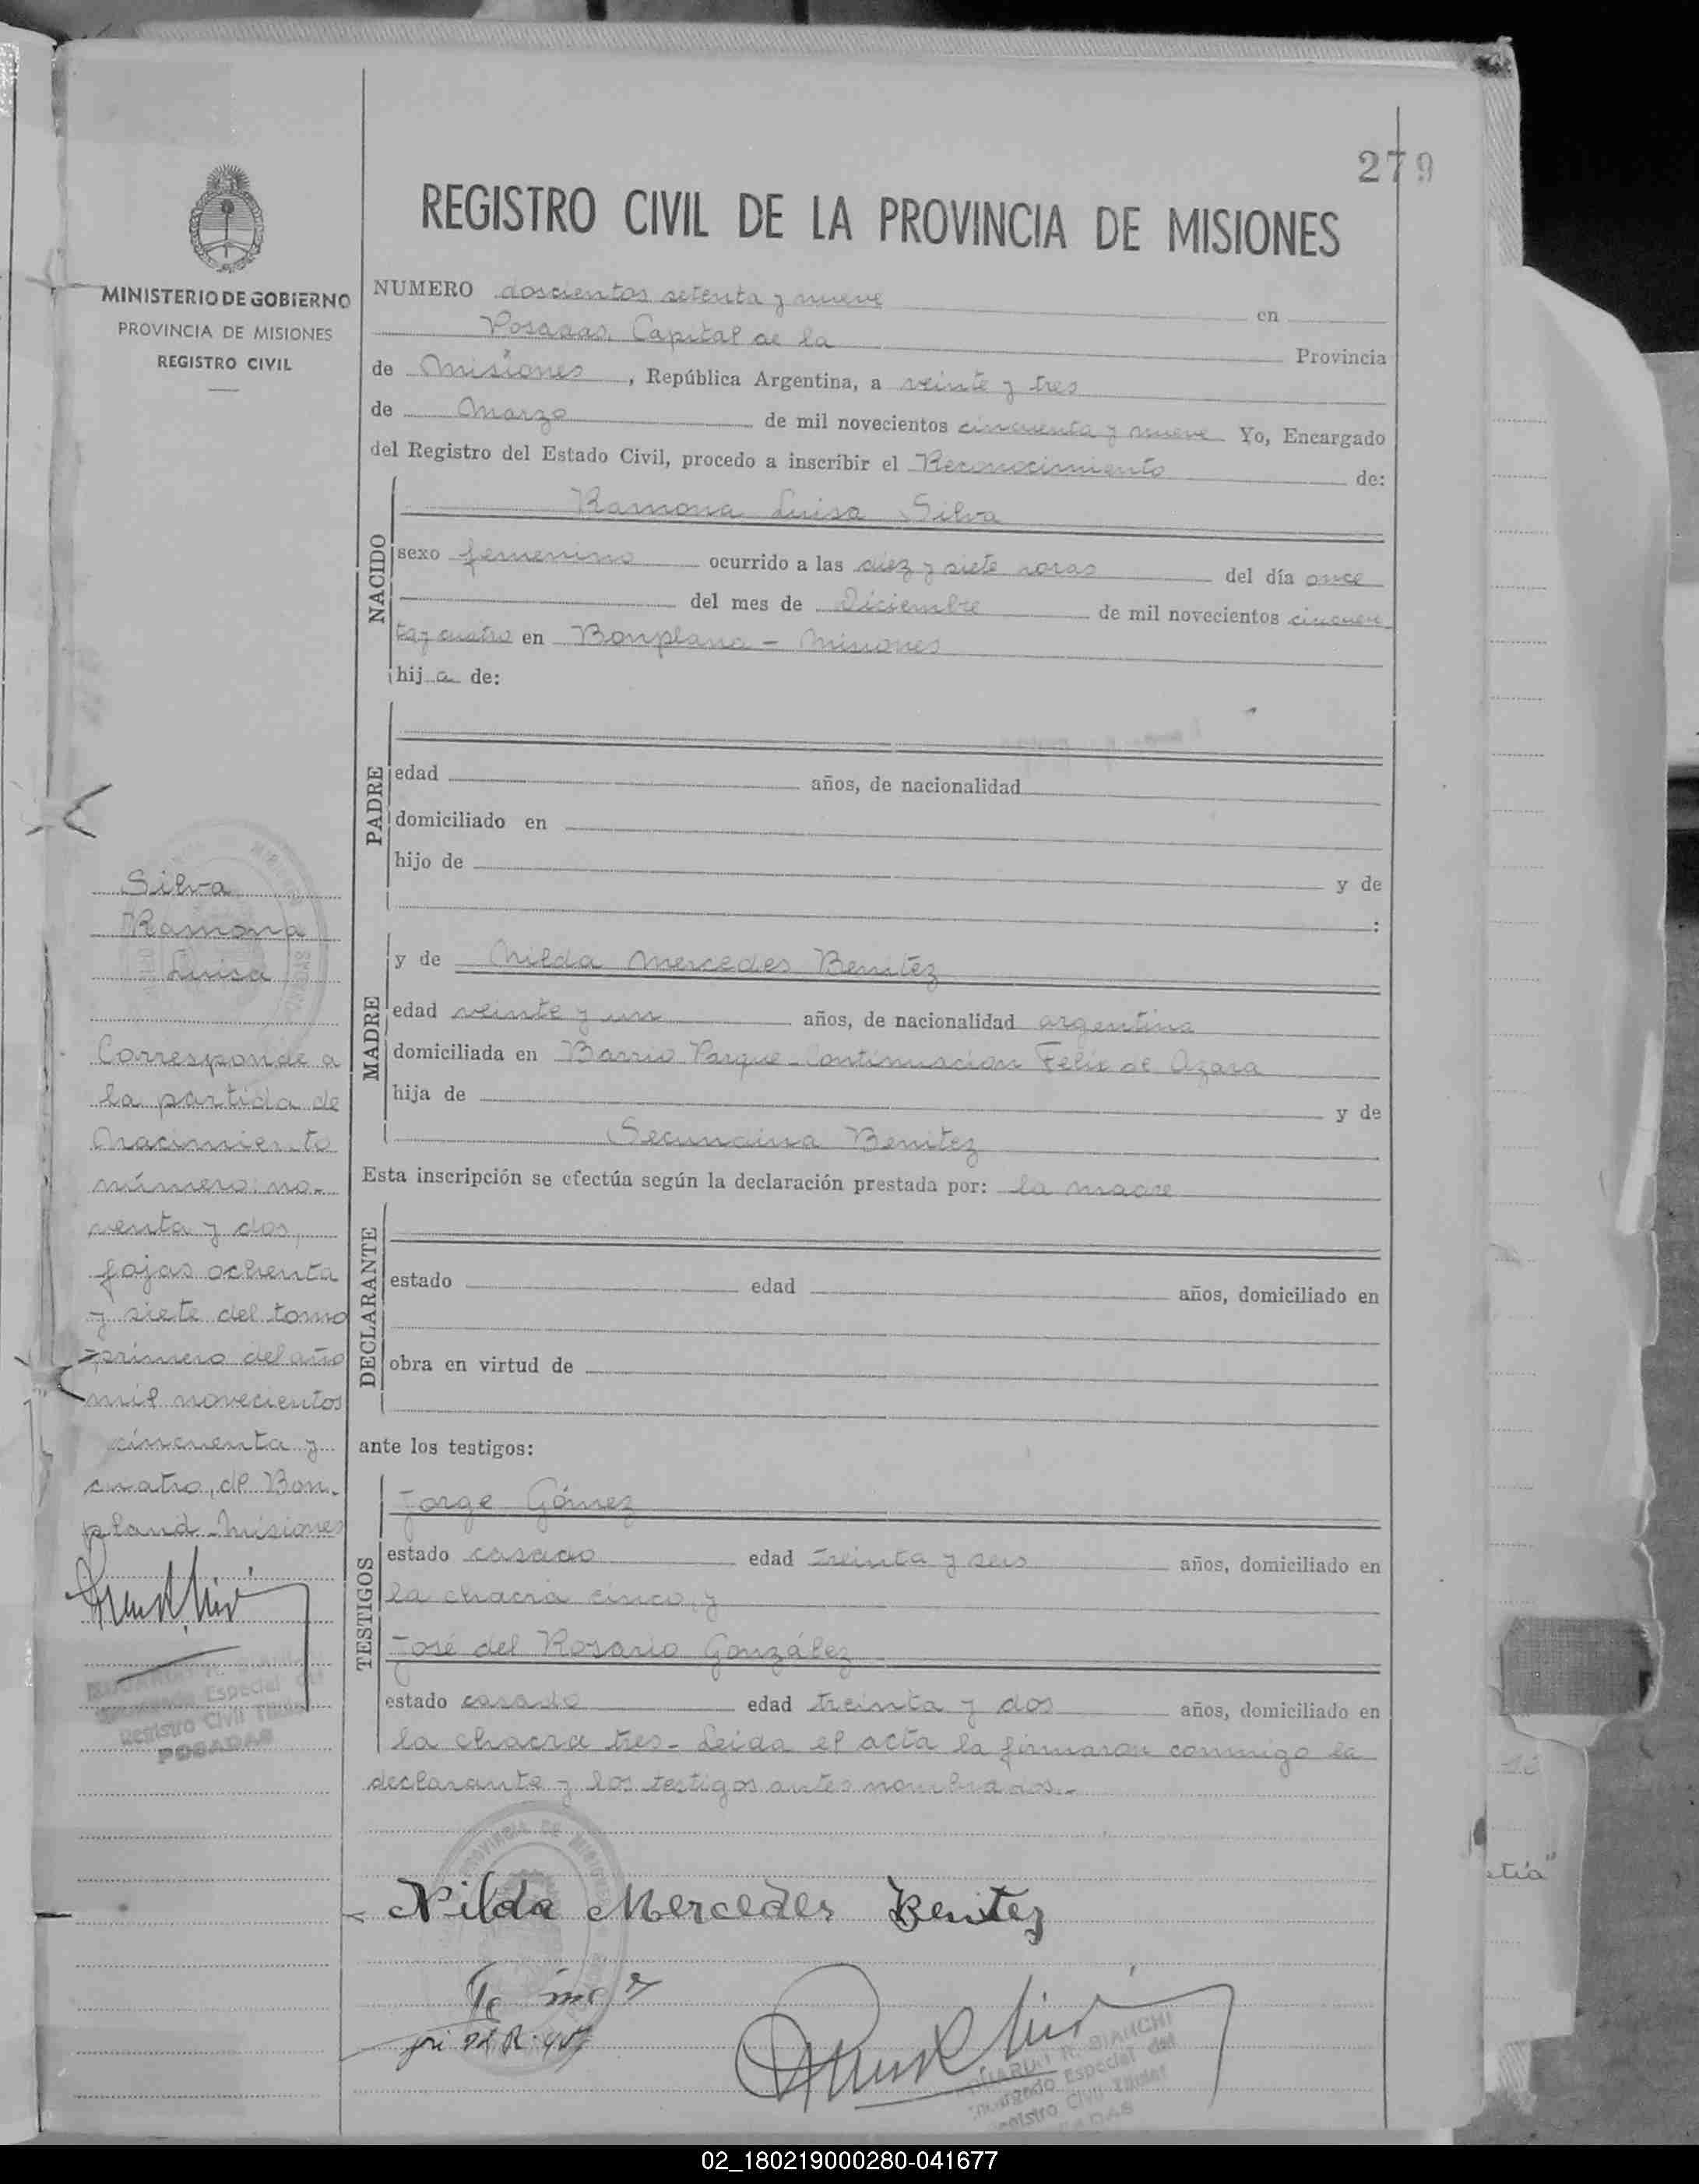 279
REGISTRO CIVIL DE LA PROVINCIA DE MISIONES
MINISTERIO DE GOBIERNO
PROVINCIA DE MISIONES
REGISTRO CIVIL
NUMERO doscientos setenta y nueve en
Posadas, Capital de la Provincia
de Misiones, República Argentina, a veinte y tres
de Marzo de mil novecientos cincuenta y nueve Yo, Encargado
del Registro del Estado Civil, procedo a inscribir el Reconocimiento de:
NACIDO
Ramona Luisa Silva
sexo femenino ocurrido a las diez y siete horas del día once
del mes de Diciembre de mil novecientos cincuen
ta y cuatro en Bonpland - Misiones
hija de:
PADRE
edad años, de nacionalidad
domiciliado en
hijo de y de
:
MADRE
y de Nilda Mercedes Benitez
edad veinte y un años, de nacionalidad argentina
domiciliada en Barrio Parque - Continuacion Felix de Azara
hija de y de
Secundina Benitez
Esta inscripción se efectúa según la declaración prestada por: la madre
DECLARANTE
estado edad años, domiciliado en
obra en virtud de
ante los testigos:
TESTIGOS
Jorge Gómez
estado casado edad treinta y seis años, domiciliado en
la chacra cinco, y
José del Rosario González
estado casado edad treinta y dos años, domiciliado en
la chacra tres - Leida el acta la firmaron conmigo la
declarante y los testigos antes nombrados.-
Nilda Mercedes Benitez
BIANCHI
Encargado Especial del
Registro Civil Titular
POSADAS
Silva
Ramona
Luisa
Corresponde a
la partida de
Nacimiento
número: no-
venta y dos,
fojas ochenta
y siete del tomo
primero del año
mil novecientos
cincuenta y
cuatro, de Bon-
pland - Misiones
Especial del
Registro Civil Titular
POSADAS
02_180219000280-041677